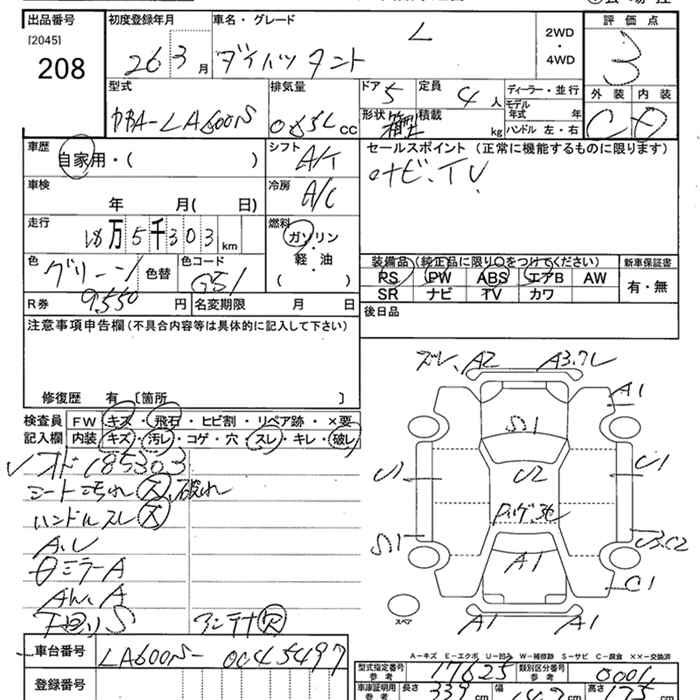 出品番号
[2045]
208
初度登録年月
26 3月
車名・グレード
ダイハツ タント
L
2WD
・
4WD
評価点
3
外装 内装
C D
型式
DBA-LA600S
排気量
0.65L CC
ドア 5
定員 4人
形状 箱型
積載 kg
ディーラー・並行
モデル年式 年
ハンドル 左・右
車歴
自家用・( )
シフト
A/T
車検
年 月( 日)
冷房
A/C
セールスポイント (正常に機能するものに限ります)
ナビ、TV
走行
18万5千303km
燃料
ガソリン
・
軽・油
( )
色
グリーン
色替
色コード
G51
R券
9,550円
名変期限 月 日
装備品(純正品に限り○をつけてください)
新車保証書
PS PW ABS エアB AW
SR ナビ TV カワ
有・無
後日品
注意事項申告欄(不具合内容等は具体的に記入して下さい)
修復歴 有 [箇所 ]
検査員
記入欄
FW キズ・飛石・ヒビ割・リペア跡・×要
内装 キズ・汚レ・コゲ・穴・スレ・キレ・破レ
オド185303
シート汚れ大、破れ
ハンドルスレ大
A、U
下回りS
アンテナ欠
車台番号
LA600S-0045497
登録番号
ズレ、A2
A3、ズレ
A1
S1
U1
U2
C1
S1
U3、C2
A1
C1
A1
A1
スペア
A-キズ E-エクボ U-凹ミ W-補修跡 S-サビ C-腐食 ××-交換済
型式指定番号
参考
17625
類別区分番号
参考
0001
車庫証明用
参考
長さ 339cm
幅 147cm
高さ 175cm